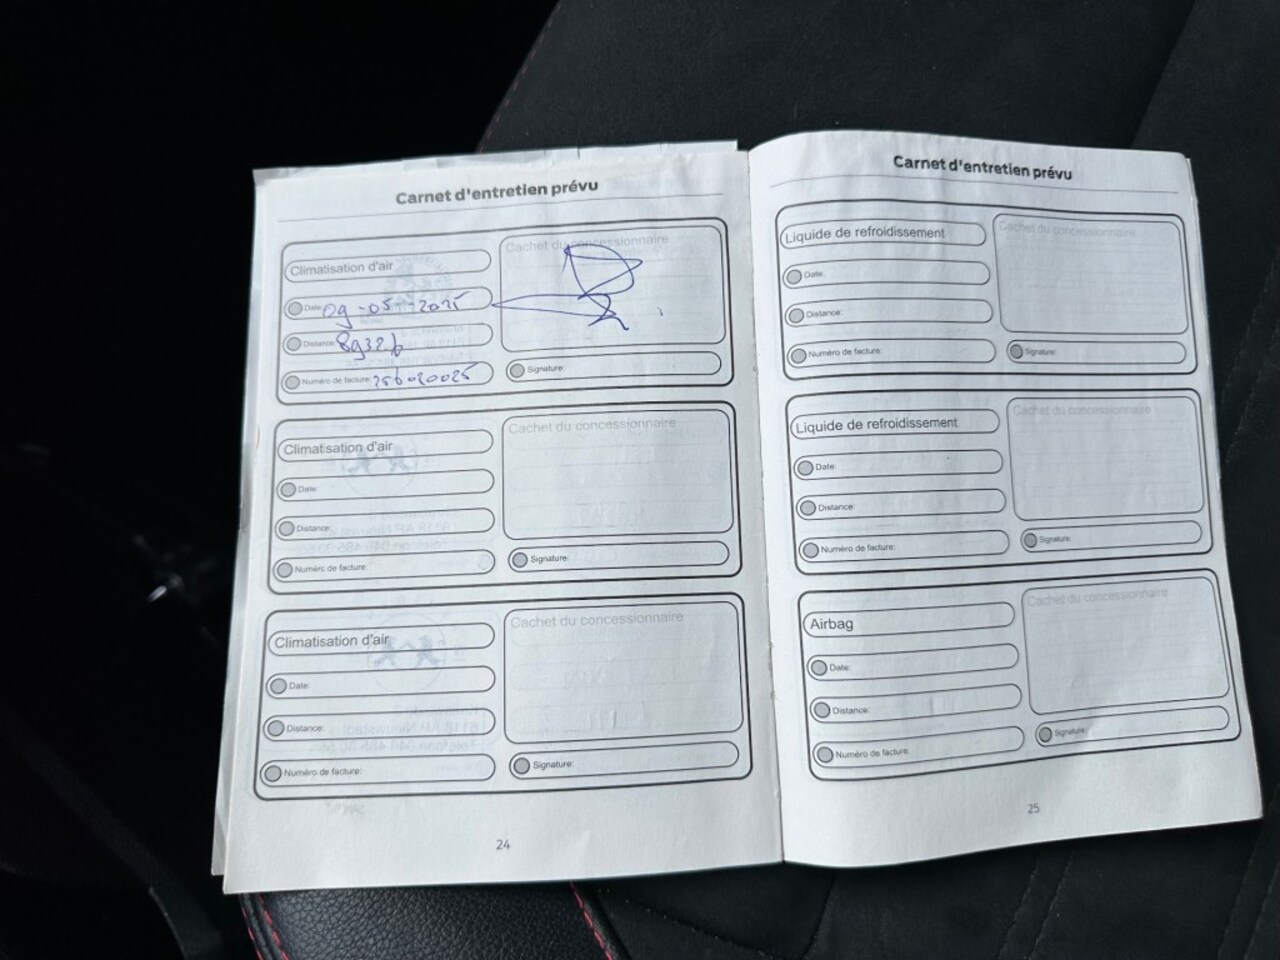 Carnet d'entretien prévu
Climatisation d'air
Cachet du concessionnaire
Date: 09-05-2025
Distance: 89326
Numéro de facture: 256020025
Signature:
Climatisation d'air
Cachet du concessionnaire
Date:
Distance:
Numéro de facture:
Signature:
Climatisation d'air
Cachet du concessionnaire
Date:
Distance:
Numéro de facture:
Signature:
24
Carnet d'entretien prévu
Liquide de refroidissement
Cachet du concessionnaire
Date:
Distance:
Numéro de facture:
Signature:
Liquide de refroidissement
Cachet du concessionnaire
Date:
Distance:
Numéro de facture:
Signature:
Airbag
Cachet du concessionnaire
Date:
Distance:
Numéro de facture:
Signature:
25